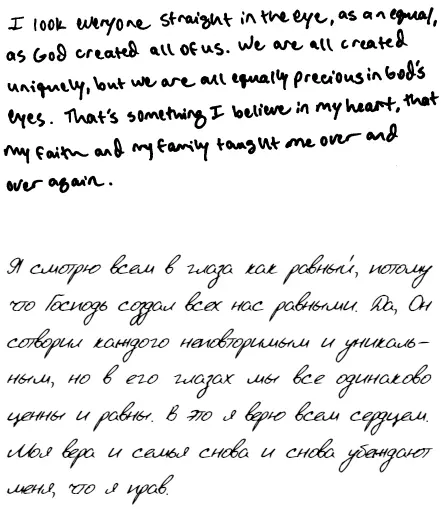 I look everyone straight in the eye, as an equal,
as God created all of us. We are all created
uniquely, but we are all equally precious in God's
eyes. That's something I believe in my heart, that
my faith and my family taught me over and
over again.
Я смотрю всем в глаза как равный, потому
что Господь создал всех нас равными. Да, Он
сотворил каждого неповторимым и уникаль-
ным, но в его глазах мы все одинаково
ценны и равны. В это я верю всем сердцем.
Моя вера и семья снова и снова убеждают
меня, что я прав.